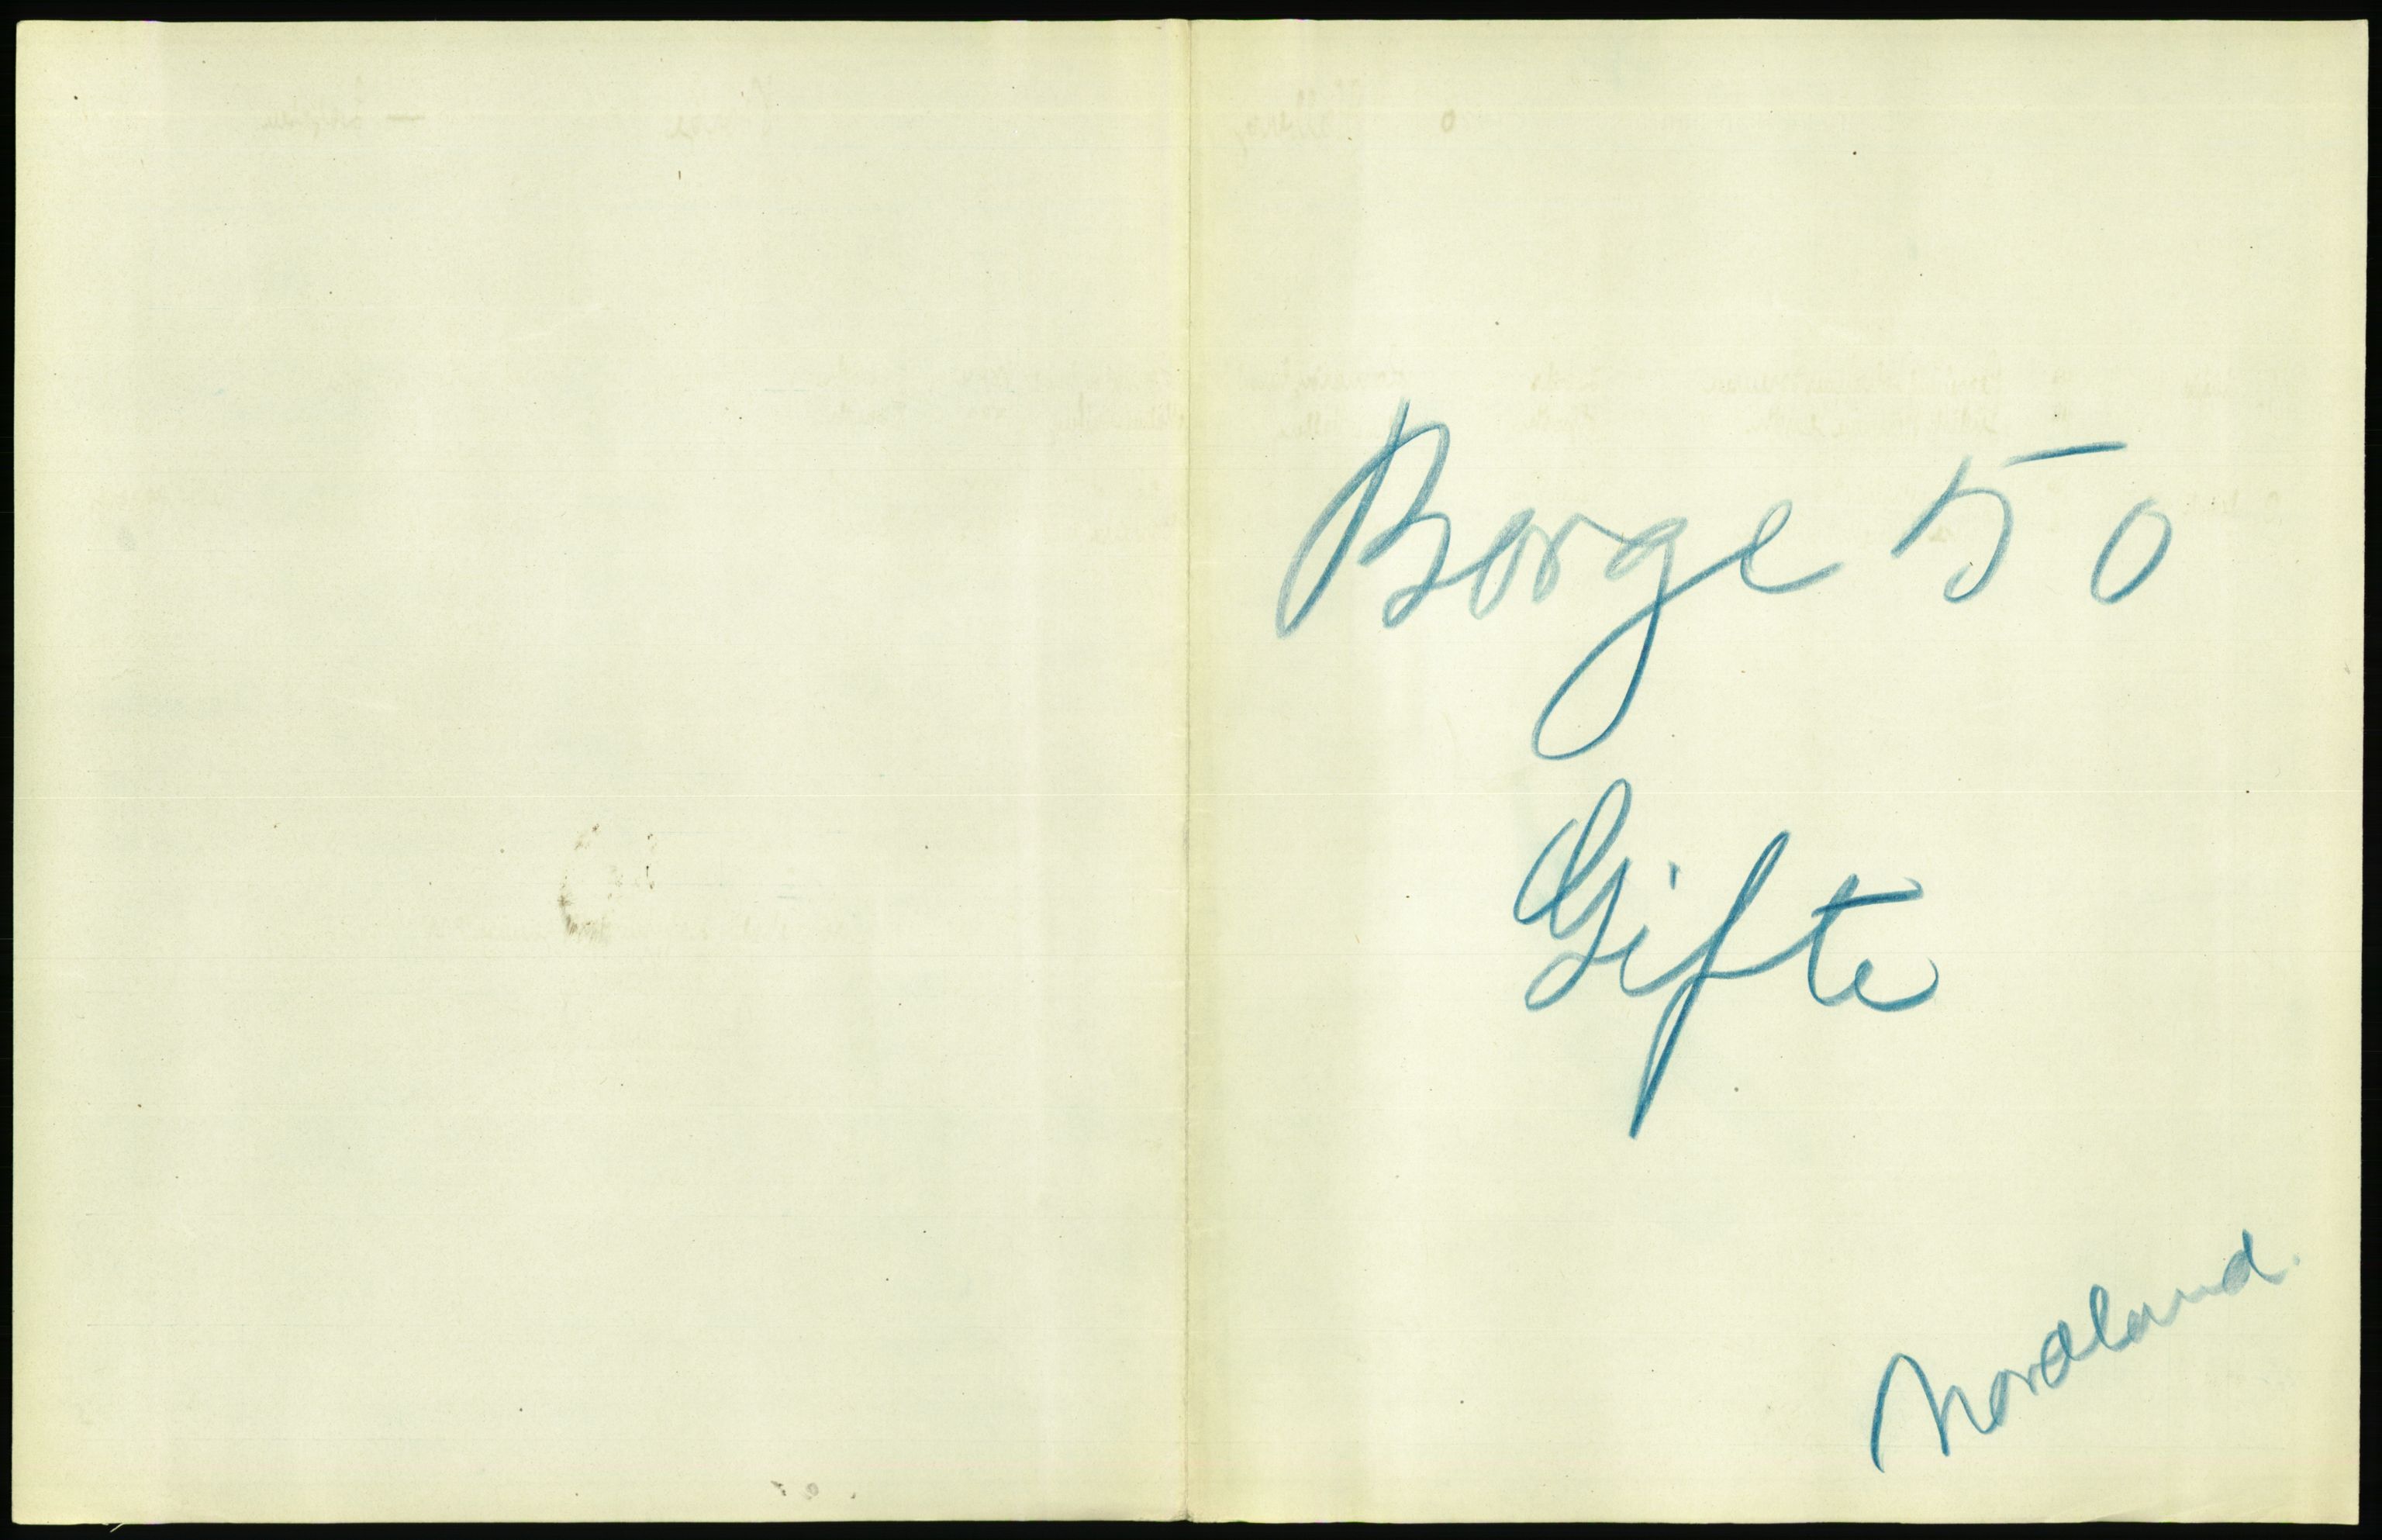 Borge 50
Gifte
Nordland.